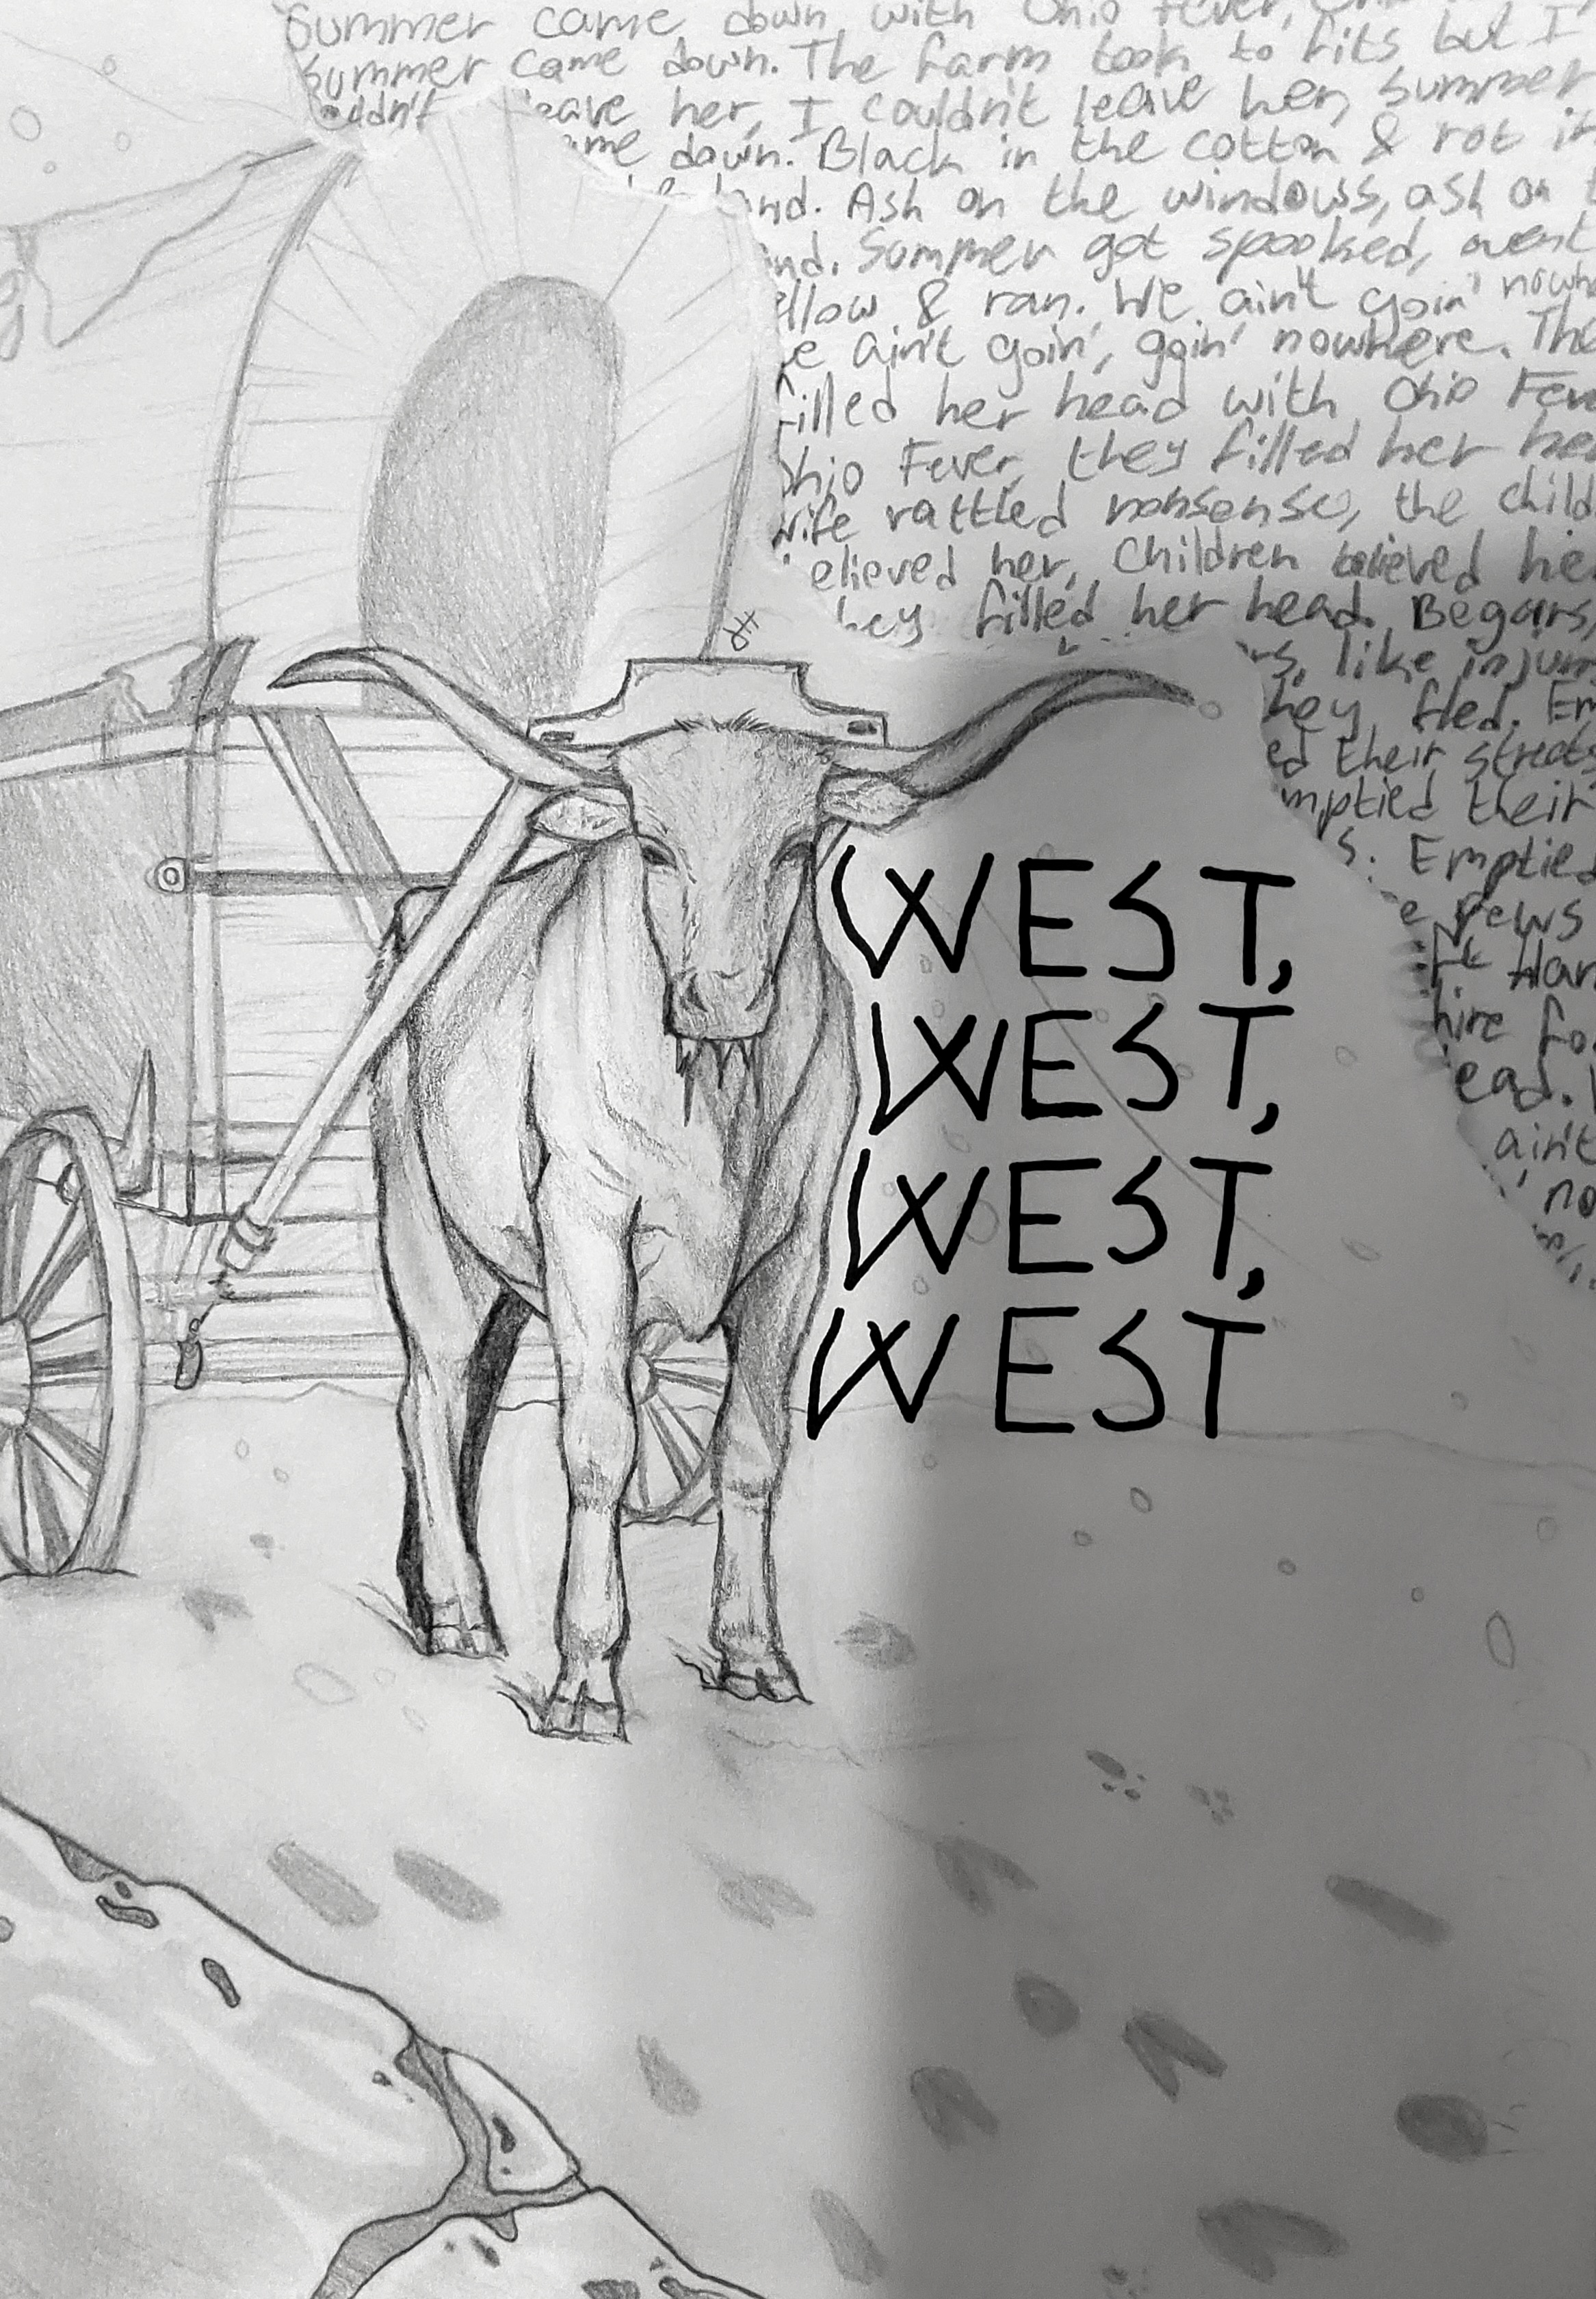 Summer came down with Ohio Fever,
Summer came down. The farm took to fits but I
couldn't leave her, I couldn't leave her, Summer
ame down. Black in the cotton & rot in
land. Ash on the windows, ash on
nd. Summer got spooked, went
ellow & ran. We ain't goin' nowhe
e ain't goin', goin' nowhere. The
filled her head with Ohio Fev
Ohio Fever, they filled her hea
wife rattled nonsense, the child
elieved her, Children believed he
hey filled her head. Begars,
rs, like injuns
hey fled. Em
ed their streets
mptied their
s. Emptied
e Pews
Ft Har
hire fo
ead.
ain't
' no
WEST,
WEST,
WEST,
WEST